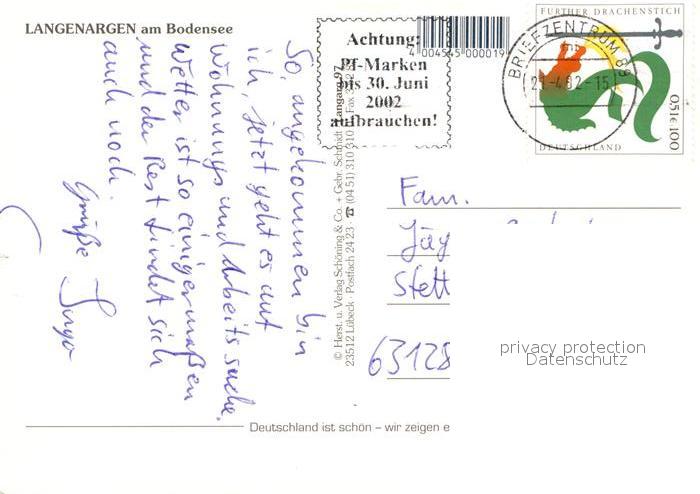 LANGENARGEN am Bodensee
So, angekommen bin
ich, jetzt geht es auf
Wohnungs und Arbeitssuche.
Wetter ist so einigermaßen
und der Rest findet sich
auch noch.
Grüße Ingo
© Herst. u. Verlag Schöning & Co. + Gebr. Schmidt
23512 Lübeck · Postfach 24 23 · ☎ (04 51) 310 310 Fax
Langarg 97
4 004545 000019
Achtung:
Pf-Marken
bis 30. Juni
2002
aufbrauchen!
BRIEFZENTRUM 89
mb
FURTHER DRACHENSTICH
0,51€ 100
DEUTSCHLAND
Fam.
Jäg
Stett
63128
privacy protection
Datenschutz
Deutschland ist schön – wir zeigen e